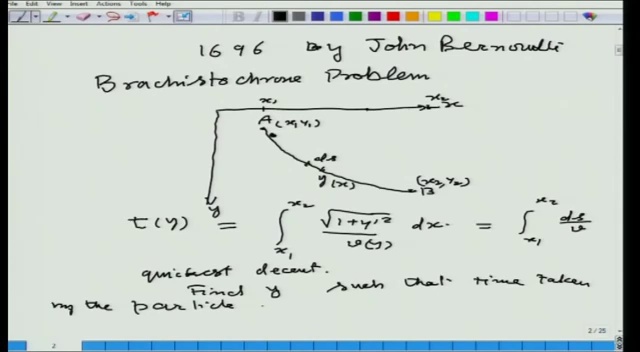 File Edit View Insert Actions Tools Help
1696 By John Bernoulli
Brachistochrone Problem
x₁ x₂ x
A (x₁, y₁)
ds
y(x) (x₂, y₂)
B
y
t(y) = ∫_{x₁}^{x₂} √(1+y'²) / v(y) dx. = ∫_{x₁}^{x₂} ds/v
quickest decent.
Find y such that time taken
by the particle
2 / 25
2